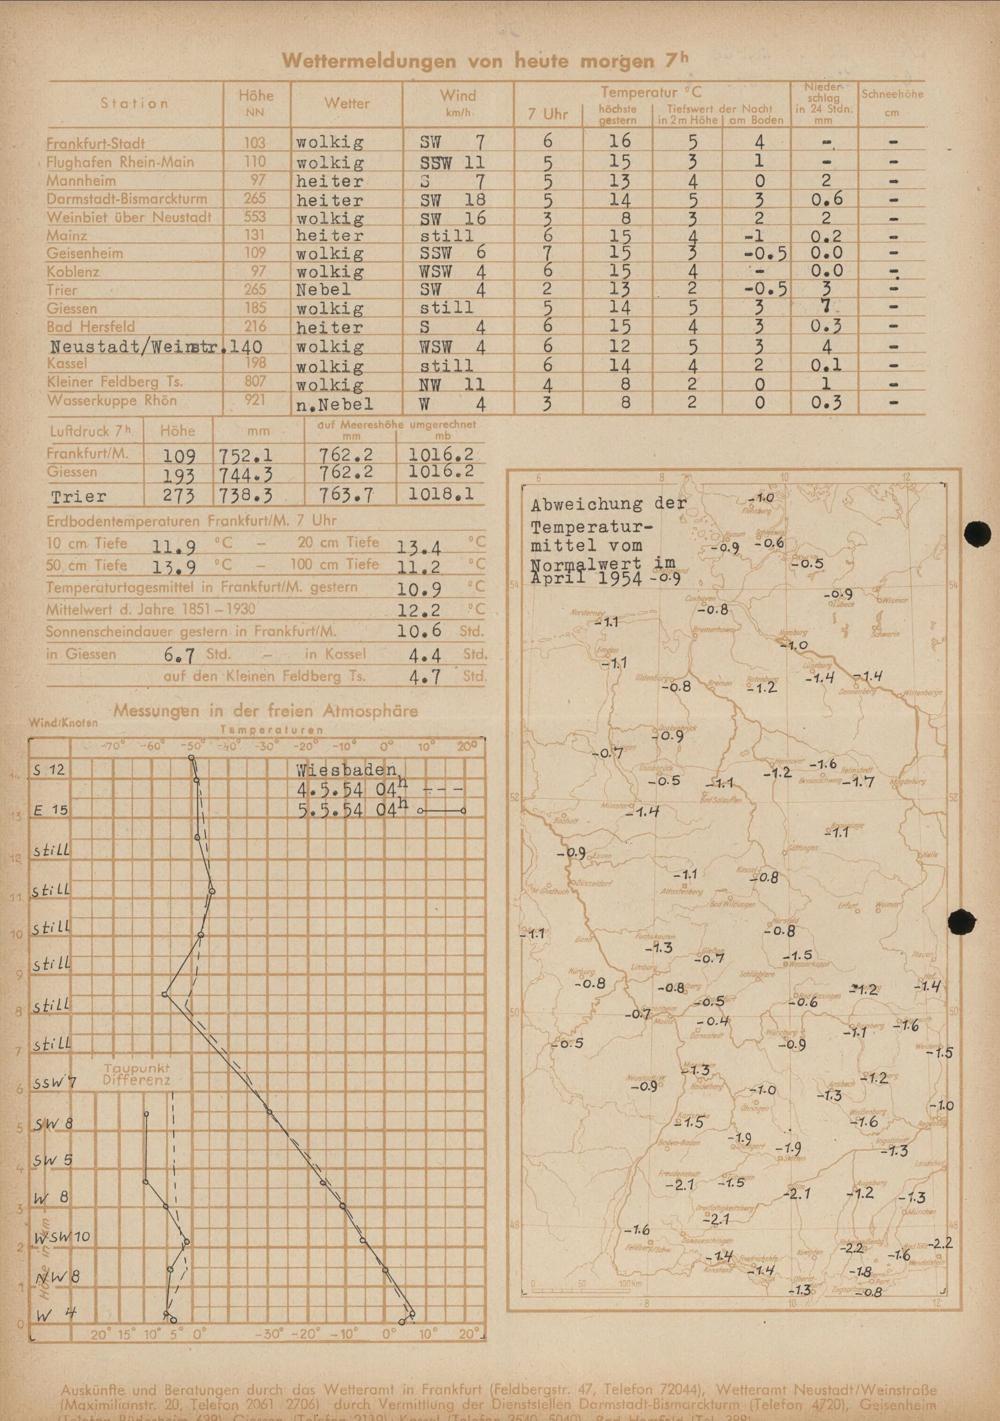 Wettermeldungen von heute morgen 7h
Station Höhe NN Wetter Wind km/h Temperatur °C 7 Uhr höchste gestern Tiefswert der Nacht in 2 m Höhe am Boden Nieder- schlag in 24 Stdn. mm Schneehöhe cm
Frankfurt-Stadt 103 wolkig SW 7 6 16 5 4 - -
Flughafen Rhein-Main 110 wolkig SSW 11 5 15 3 1 - -
Mannheim 97 heiter S 7 5 13 4 0 2 -
Darmstadt-Bismarckturm 265 heiter SW 18 5 14 5 3 0.6 -
Weinbiet über Neustadt 553 wolkig SW 16 3 8 3 2 2 -
Mainz 131 heiter still 6 15 4 -1 0.2 -
Geisenheim 109 wolkig SSW 6 7 15 3 -0.5 0.0 -
Koblenz 97 wolkig WSW 4 6 15 4 - 0.0 -
Trier 265 Nebel SW 4 2 13 2 -0.5 3 -
Giessen 185 wolkig still 5 14 5 3 7 -
Bad Hersfeld 216 heiter S 4 6 15 4 3 0.3 -
Neustadt/Weinstr. 140 wolkig WSW 4 6 12 5 3 4 -
Kassel 198 wolkig still 6 14 4 2 0.1 -
Kleiner Feldberg Ts. 807 wolkig NW 11 4 8 2 0 1 -
Wasserkuppe Rhön 921 n.Nebel W 4 3 8 2 0 0.3 -
Luftdruck 7h Höhe mm auf Meereshöhe umgerechnet mm mb
Frankfurt/M. 109 752.1 762.2 1016.2
Giessen 193 744.3 762.2 1016.2
Trier 273 738.3 763.7 1018.1
Erdbodentemperaturen Frankfurt/M. 7 Uhr
10 cm Tiefe 11.9 °C - 20 cm Tiefe 13.4 °C
50 cm Tiefe 13.9 °C - 100 cm Tiefe 11.2 °C
Temperaturtagesmittel in Frankfurt/M. gestern 10.9 °C
Mittelwert d. Jahre 1851-1930 12.2 °C
Sonnenscheindauer gestern in Frankfurt/M. 10.6 Std.
in Giessen 6.7 Std. - in Kassel 4.4 Std.
auf den Kleinen Feldberg Ts. 4.7 Std.
Messungen in der freien Atmosphäre
Wind/Knoten Temperaturen
-70° -60° -50° -40° -30° -20° -10° 0° 10° 20°
S 12 Wiesbaden
4.5.54 04h ---
E 15 5.5.54 04h
13
still
12
still
11
still
10
still
9
still
8
still
7
SSW 7 Taupunkt Differenz
6
SW 8
5
SW 5
4
W 8
3
WSW 10
2
NW 8
1
W 4
0
Höhe in km
20° 15° 10° 5° 0° -30° -20° -10° 0° 10° 20°
6 8 10 12
Abweichung der
Temperatur-
mittel vom
Normalwert im
April 1954
-1.0
-0.9 -0.6
-0.5
-0.9 54
-0.9
-0.8
-1.1
-1.0
-1.1
-0.8 -1.2 -1.4 -1.4
-0.9
-0.7
-0.5 -1.1 -1.2 -1.6 -1.7
52
-1.4
-1.1
-0.9
-1.1 -0.8
-1.1 -0.8
-1.3 -0.7 -1.5
-0.8 -0.8 -0.5 -0.6 -1.2 -1.4
50
-0.7 -0.4 -1.1 -1.6
-0.5 -0.9 -1.5
-1.3 -1.2
-0.9 -1.0 -1.3
-1.0
-1.5 -1.6
-1.9 -1.9 -1.3
-2.1 -1.5 -2.1 -1.2 -1.3
-2.1
-1.6 48
-1.4 -2.2 -1.6 -2.2
-1.4 -1.8
-1.3 -0.8
0 50 100 Km
8 10 12
Auskünfte und Beratungen durch das Wetteramt in Frankfurt (Feldbergstr. 47, Telefon 72044), Wetteramt Neustadt/Weinstraße
(Maximilianstr. 20, Telefon 2061 2706) durch Vermittlung der Dienststellen Darmstadt-Bismarckturm (Telefon 4720), Geisenheim